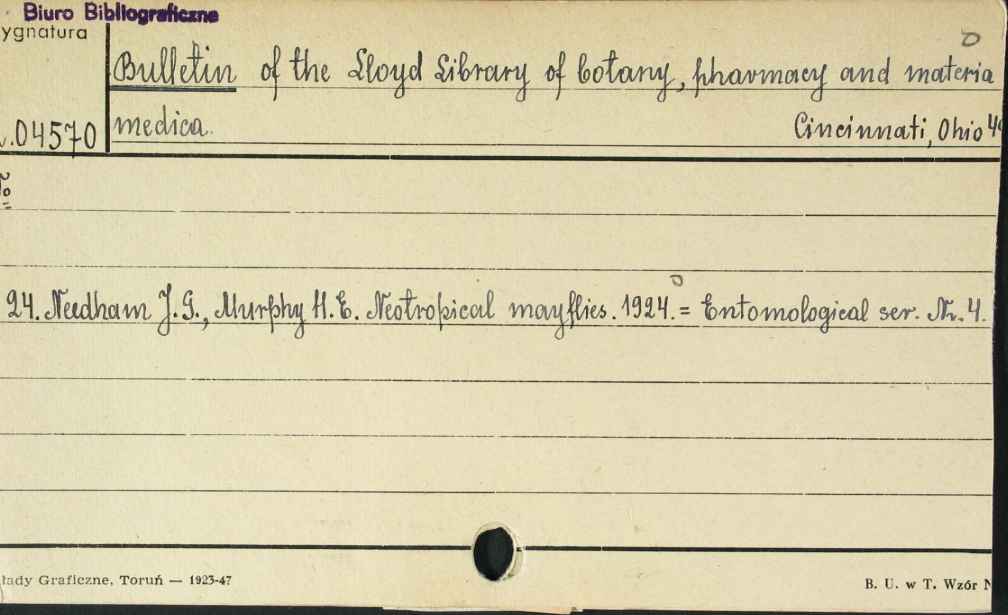 Biuro Bibliograficzne
ygnatura
Bulletin of the Lloyd Library of botany, pharmacy and materia
.04570 medica. Cincinnati, Ohio 4
24. Needham J. G., Murphy H. E. Neotropical mayflies. 1924. = Entomological ser. Nr. 4.
łady Graficzne, Toruń — 1923-47
B. U. w T. Wzór N